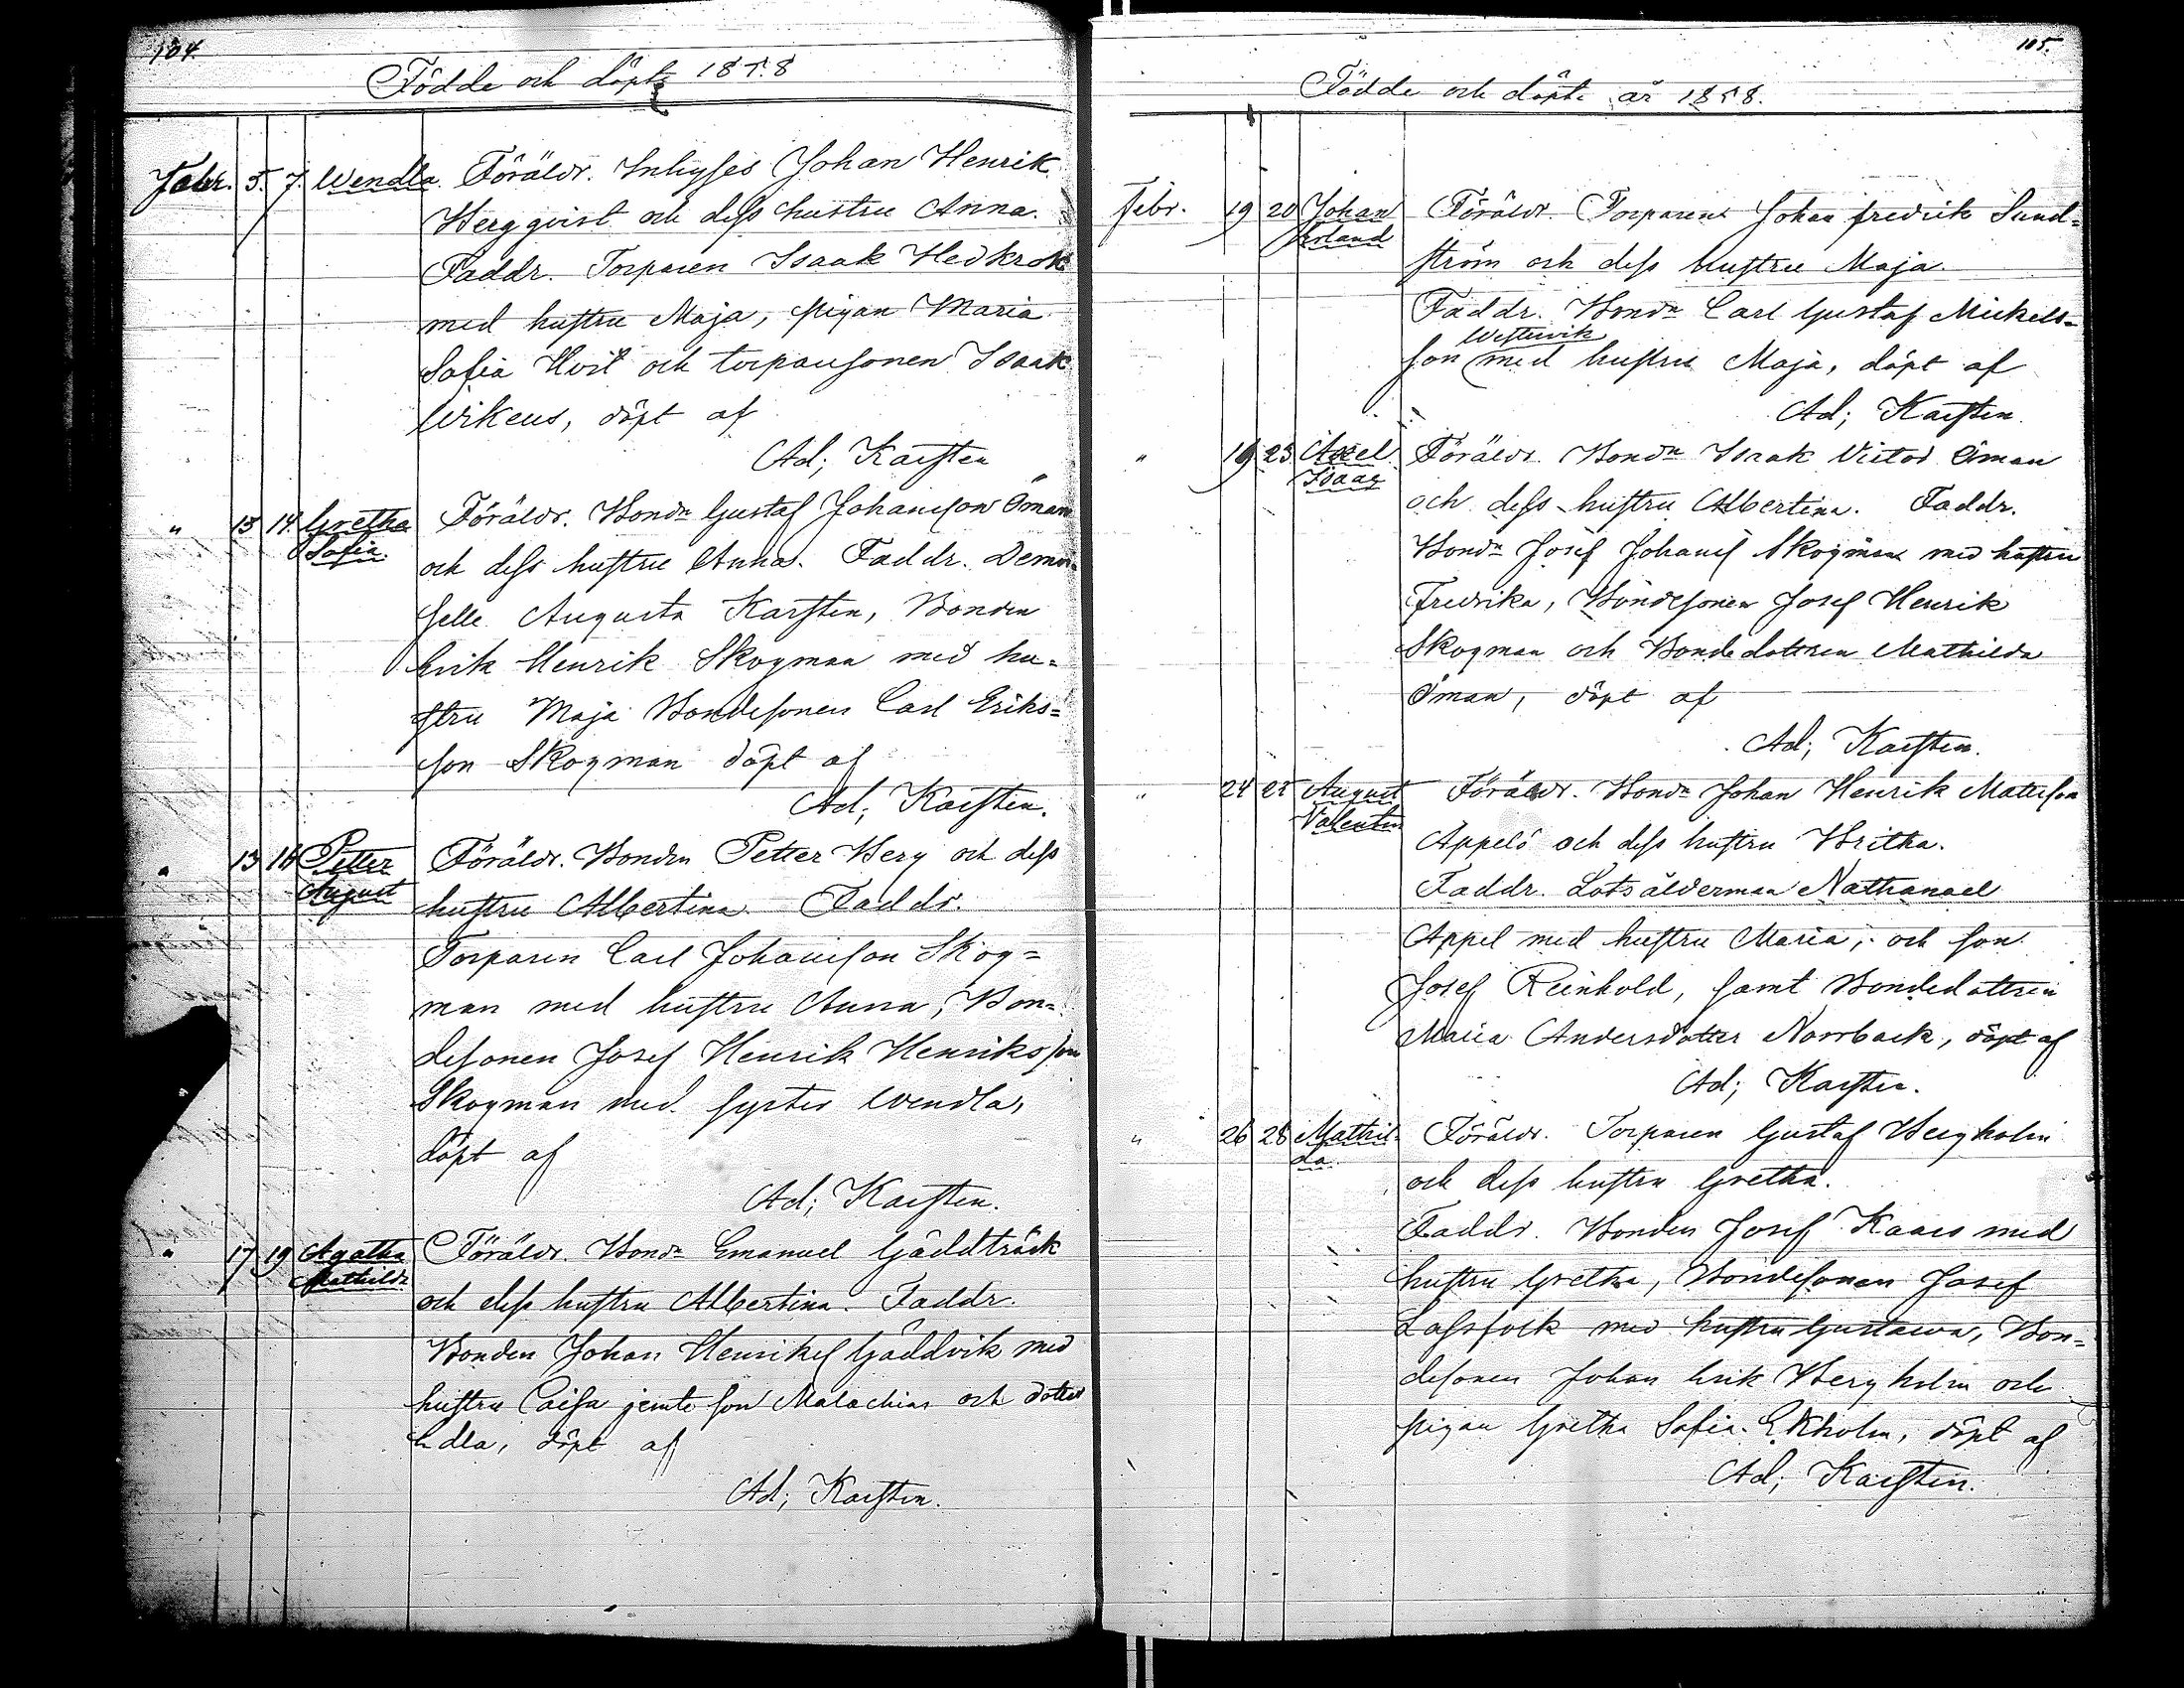 104.
Födde och döpte 1858
Febr. 5. 7. Wendla. Föräldr. Inhyses Johan Henrik
Bergqvist och dess hustru Anna.
Faddr. Torparen Isaak Hedkrok
med hustru Maja, pigan Maria
Sofia Hvit och torparesonen Isaak
Wikeus, döpt af
Ad; Karsten
" 13 14. Gretha Sofia. Föräldr. Bondn Gustaf Johansson Öman
och dess hustru Anna. Faddr. Demoi-
selle Augusta Karsten, Bonden
Erik Henrik Skogman med hu-
stru Maja Bondesonen Carl Eriks-
son Skogman döpt af
Ad; Karsten.
" 13 16 Petter August Föräldr. Bonden Petter Berg och dess
hustru Albertina. Faddr.
Torparen Carl Johansson Skog-
man med hustru Anna, Bon-
desonen Josef Henrik Henriksson
Skogman med syster Wendla,
döpt af
Ad; Karsten.
" 17 19 Agatha Mathilda Föräldr. Bondn Emanuel Gäddträsk
och dess hustru Albertina. Faddr.
Bonden Johan Henriks Gäddvik med
hustru Caisa jemte son Malachias och dotter
Edla, döpt af
Ad; Karsten.
105.
Födde och döpte år 1858.
Febr. 19 20 Johan Erland Föräldr. Torparen Johan Fredrik Sund-
ström och dess hustru Maja.
Faddr. Bondn Carl Gustaf Mickels-
Westervik
son med hustru Maja, döpt af
Ad; Karsten.
" 19 23 Axel Isaac Föräldr. Bondn Isaak Victor Öman
och dess hustru Albertina. Faddr.
Bondn Josef Johans Skogman med hustru
Fredrika, Bondesonen Josef Henrik
Skogman och Bondedottren Mathilda
Öman, döpt af
Ad; Karsten.
" 24 25 August Valentin Föräldr. Bondn Johan Henrik Matsson
Appelö och dess hustru Britha.
Faddr. Lotsålderman Nathanael
Appel med hustru Maria, och son
Josef Reinhold, samt Bondedottren
Maria Andersdotter Norrback, döpt af
Ad; Karsten.
" 26 28 Mathil- da. Föräldr. Torparen Gustaf Bergholm
och dess hustru Gretha.
Faddr. Bonden Josef Kaars med
hustru Gretha, Bondesonen Josef
Lassfolk med hustru Gustava, Bon-
desonen Johan Erik Bergholm och
pigan Gretha Sofia Ekholm, döpt af
Ad; Karsten.